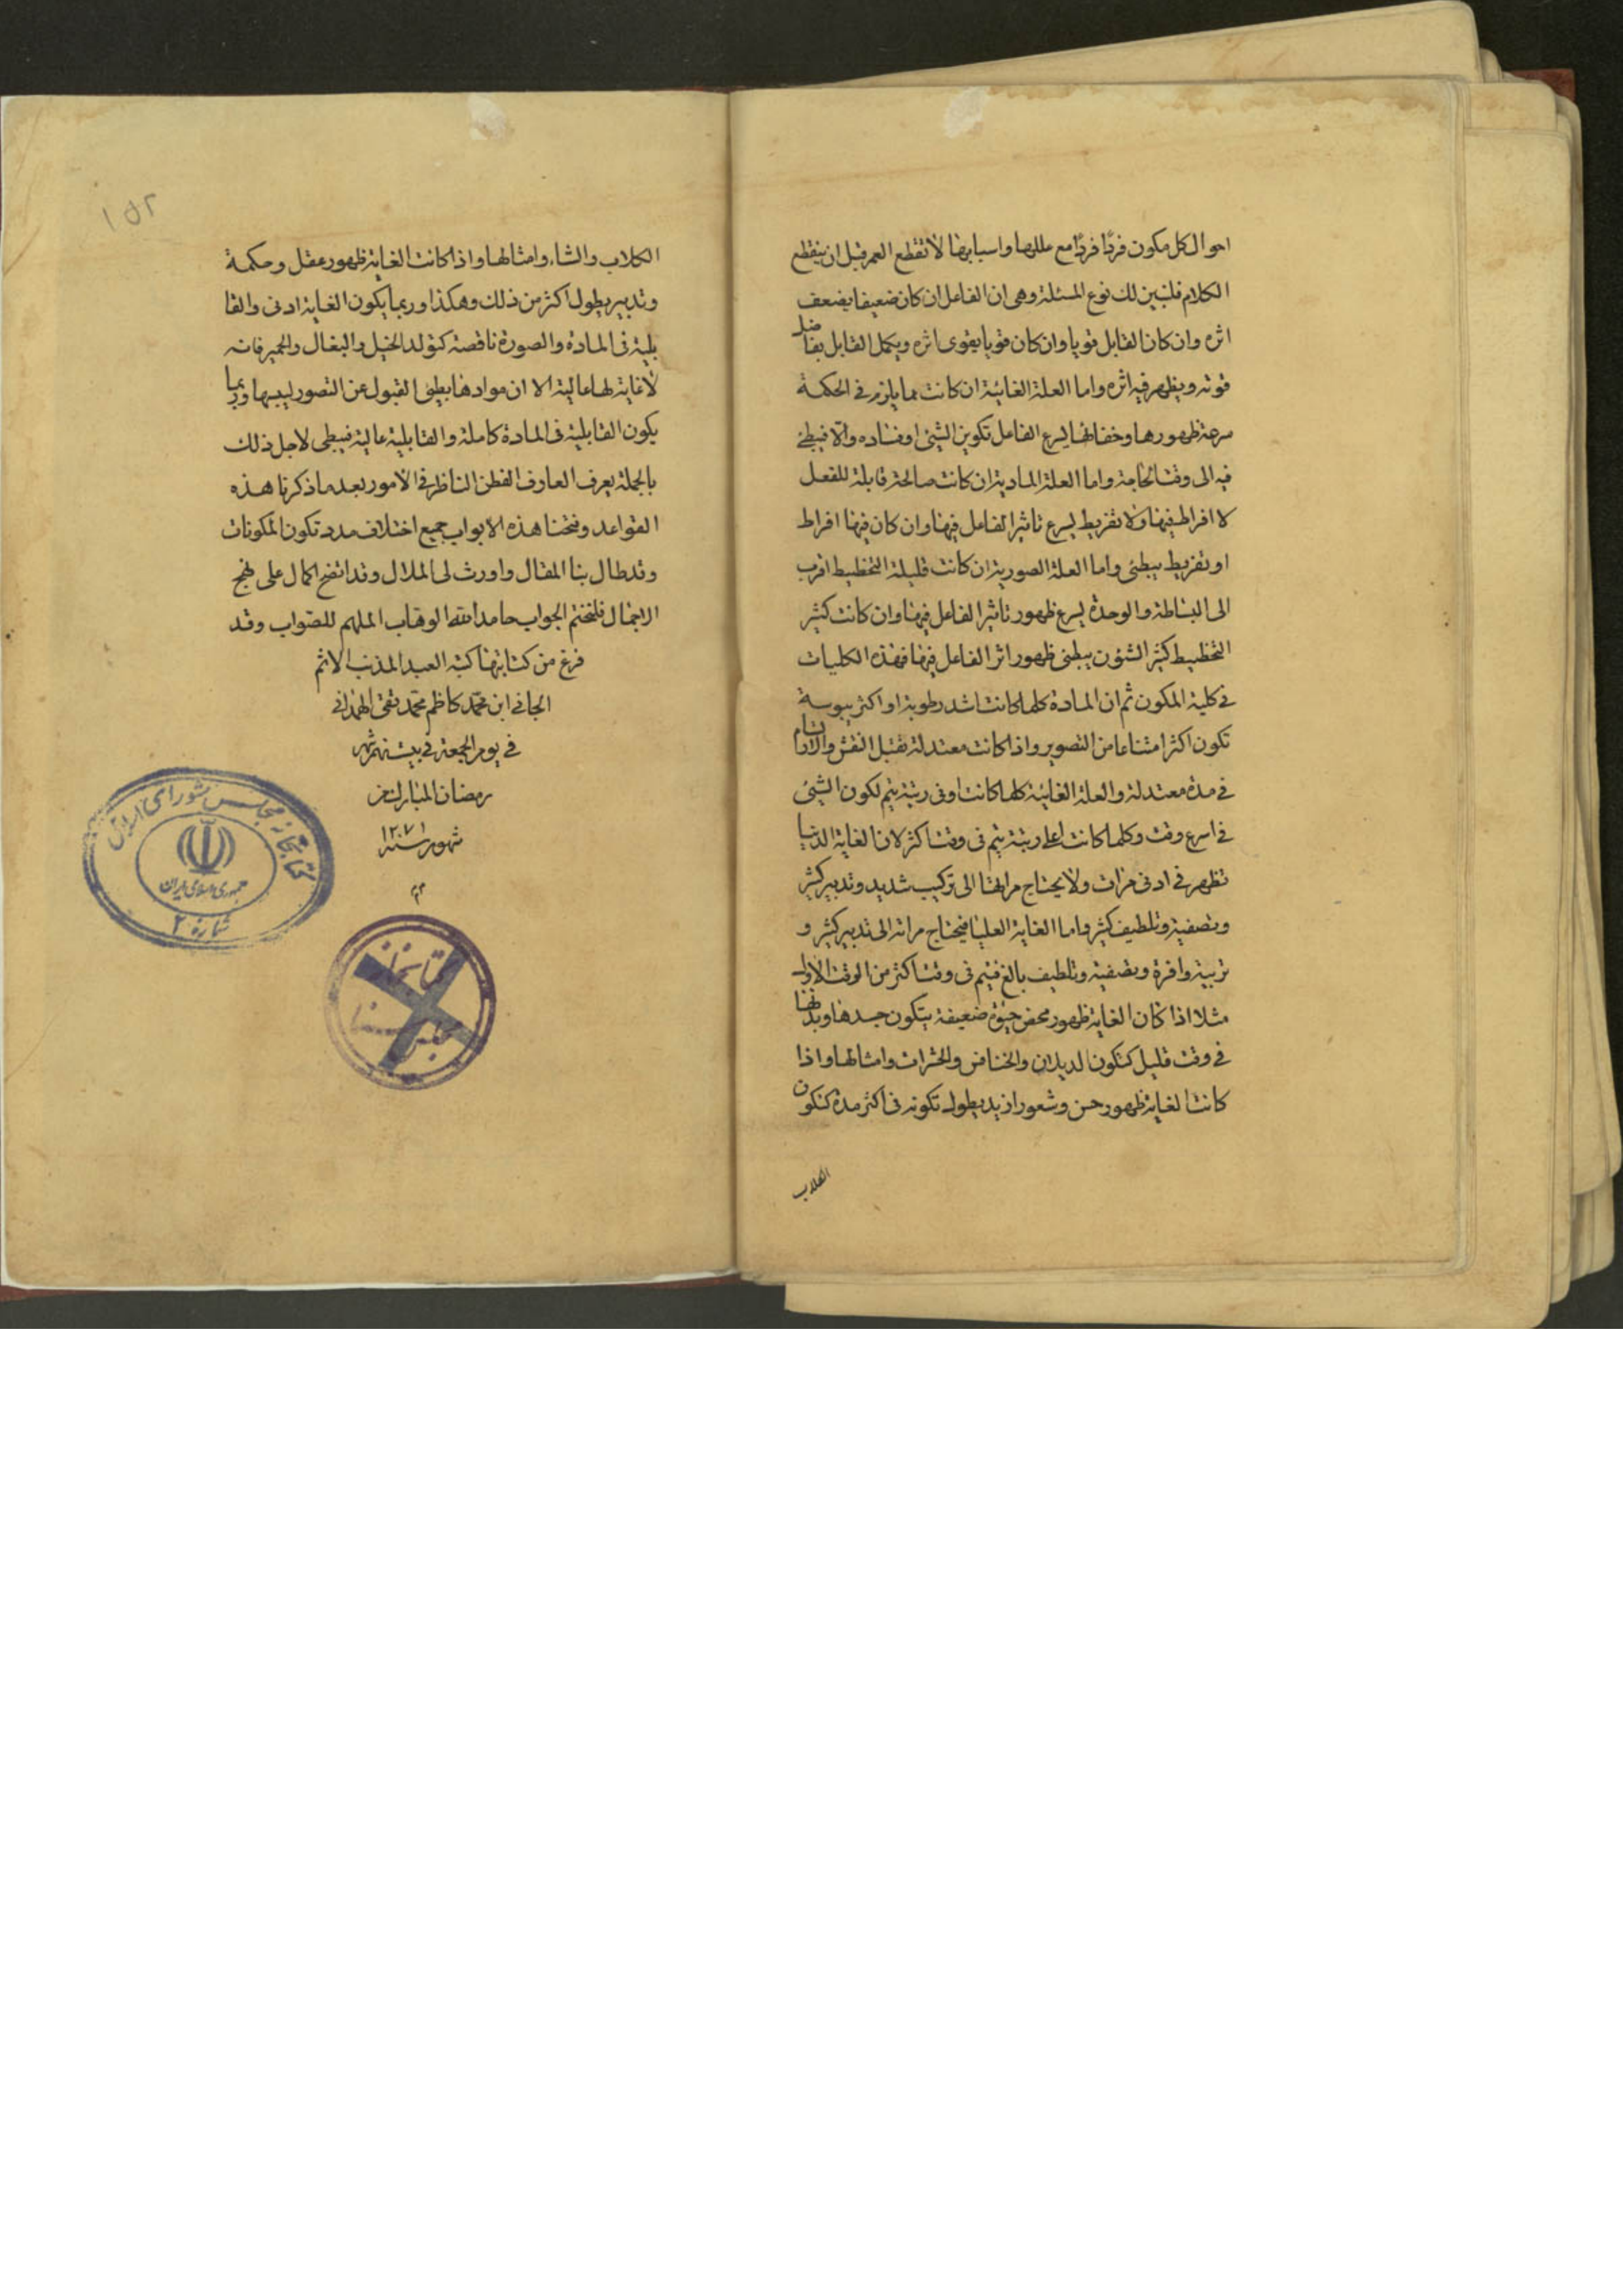 احوال كل مكون فردًا فردًا مع عللها واسبابها لانقطع العمر قبل ان ينقطع
الكلام فلنبين لك نوع المسئلة وهى ان الفاعل ان كان ضعيفا يضعف
اثره وان كان القابل قويا وان كان قويا يقوى اثره ويكمل القابل بفاضل
قوته ويظهر فيه اثره واما العلة الغائية ان كانت مما يلزم فى الحكمة
سرعة ظهورها وخفائها يسرع الفاعل تكوين الشئ او فساده والا فيبطئ
فيه الى وقت واما العلة المادية ان كانت صالحة قابلة للفعل
لا افراط فيها ولا تفريط يسرع تاثير الفاعل فيها وان كان فيها افراط
او تفريط يبطئ واما العلة الصورية ان كانت قليلة التخطيط اقرب
الى البساطة والوحدة يسرع ظهور تاثير الفاعل فيها وان كانت كثير
التخطيط كثير الشؤن يبطئ ظهور اثر الفاعل فيها فهذه الكليات
فى كلية المكون ثم ان المادة كلما كانت اشد رطوبة او اكثر يبوسة
تكون اكثر امتناعا من التصوير واذا كانت معتدلة تقبل النقش
فى مدة معتدلة والعلة الغائية كلما كانت ادنى رتبة يتم تكون الشئ
فى اسرع وقت وكلما كانت اعلى رتبة يتم فى وقت اكثر لان الغاية الدنيا
تظهر فى ادنى مرات ولا يحتاج مراتها الى تركيب شديد وتدبير كثير
وتصفية وتلطيف كثير واما الغاية العليا فيحتاج مراته الى تدبير كثير و
تربية وافرة وتصفية وتلطيف بالغ فيتم فى وقت اكثر من الوقت الاول
مثلا اذا كان الغاية ظهور محض حيوة ضعيفة يتكون جسدها وبدنها
فى وقت قليل كتكون الديدان والخنافس والحشرات وامثالها واذا
كانت الغاية ظهور حس وشعور ازيد يطول تكونه فى اكثر مدة كتكون
الكلاب
١٥٢
الكلاب والشاء وامثالها واذا كانت الغاية ظهور عقل وحكمة
وتدبير يطول اكثر من ذلك وهكذا وربما يكون الغاية ادنى والقا
بلية فى المادة والصورة ناقصة كتولد الخيل والبغال والحمير فانه
لا غاية لها عالية الا ان موادها بطيئ القبول عن التصور ليبسها وربما
يكون القابلية فى المادة كاملة والقابلية عالية فيبطى لاجل ذلك
بالجملة يعرف العارف الفطن الناظر فى الامور بعد ما ذكرنا هذه
القواعد وفتحنا هذه الابواب جميع اختلاف مدد تكون المكونات
وقد طال بنا المقال واورث لى الملال وقد اتضح الحال على نهج
الاجمال فلنختم الجواب حامدا لله الوهاب الملهم للصواب وقد
فرغ من كتابتها كتبه العبد المذنب الاثم
الجانى ابن محمد كاظم محمد تقى الهمدانى
فى يوم الجمعة فى بيست نهم شهر
رمضان المبارك من
شهور سنه ١٢٧١
كتابخانه مجلس شوراى اسلامى
جمهورى اسلامى ايران
شماره ٢
كتابخانه
مجلس